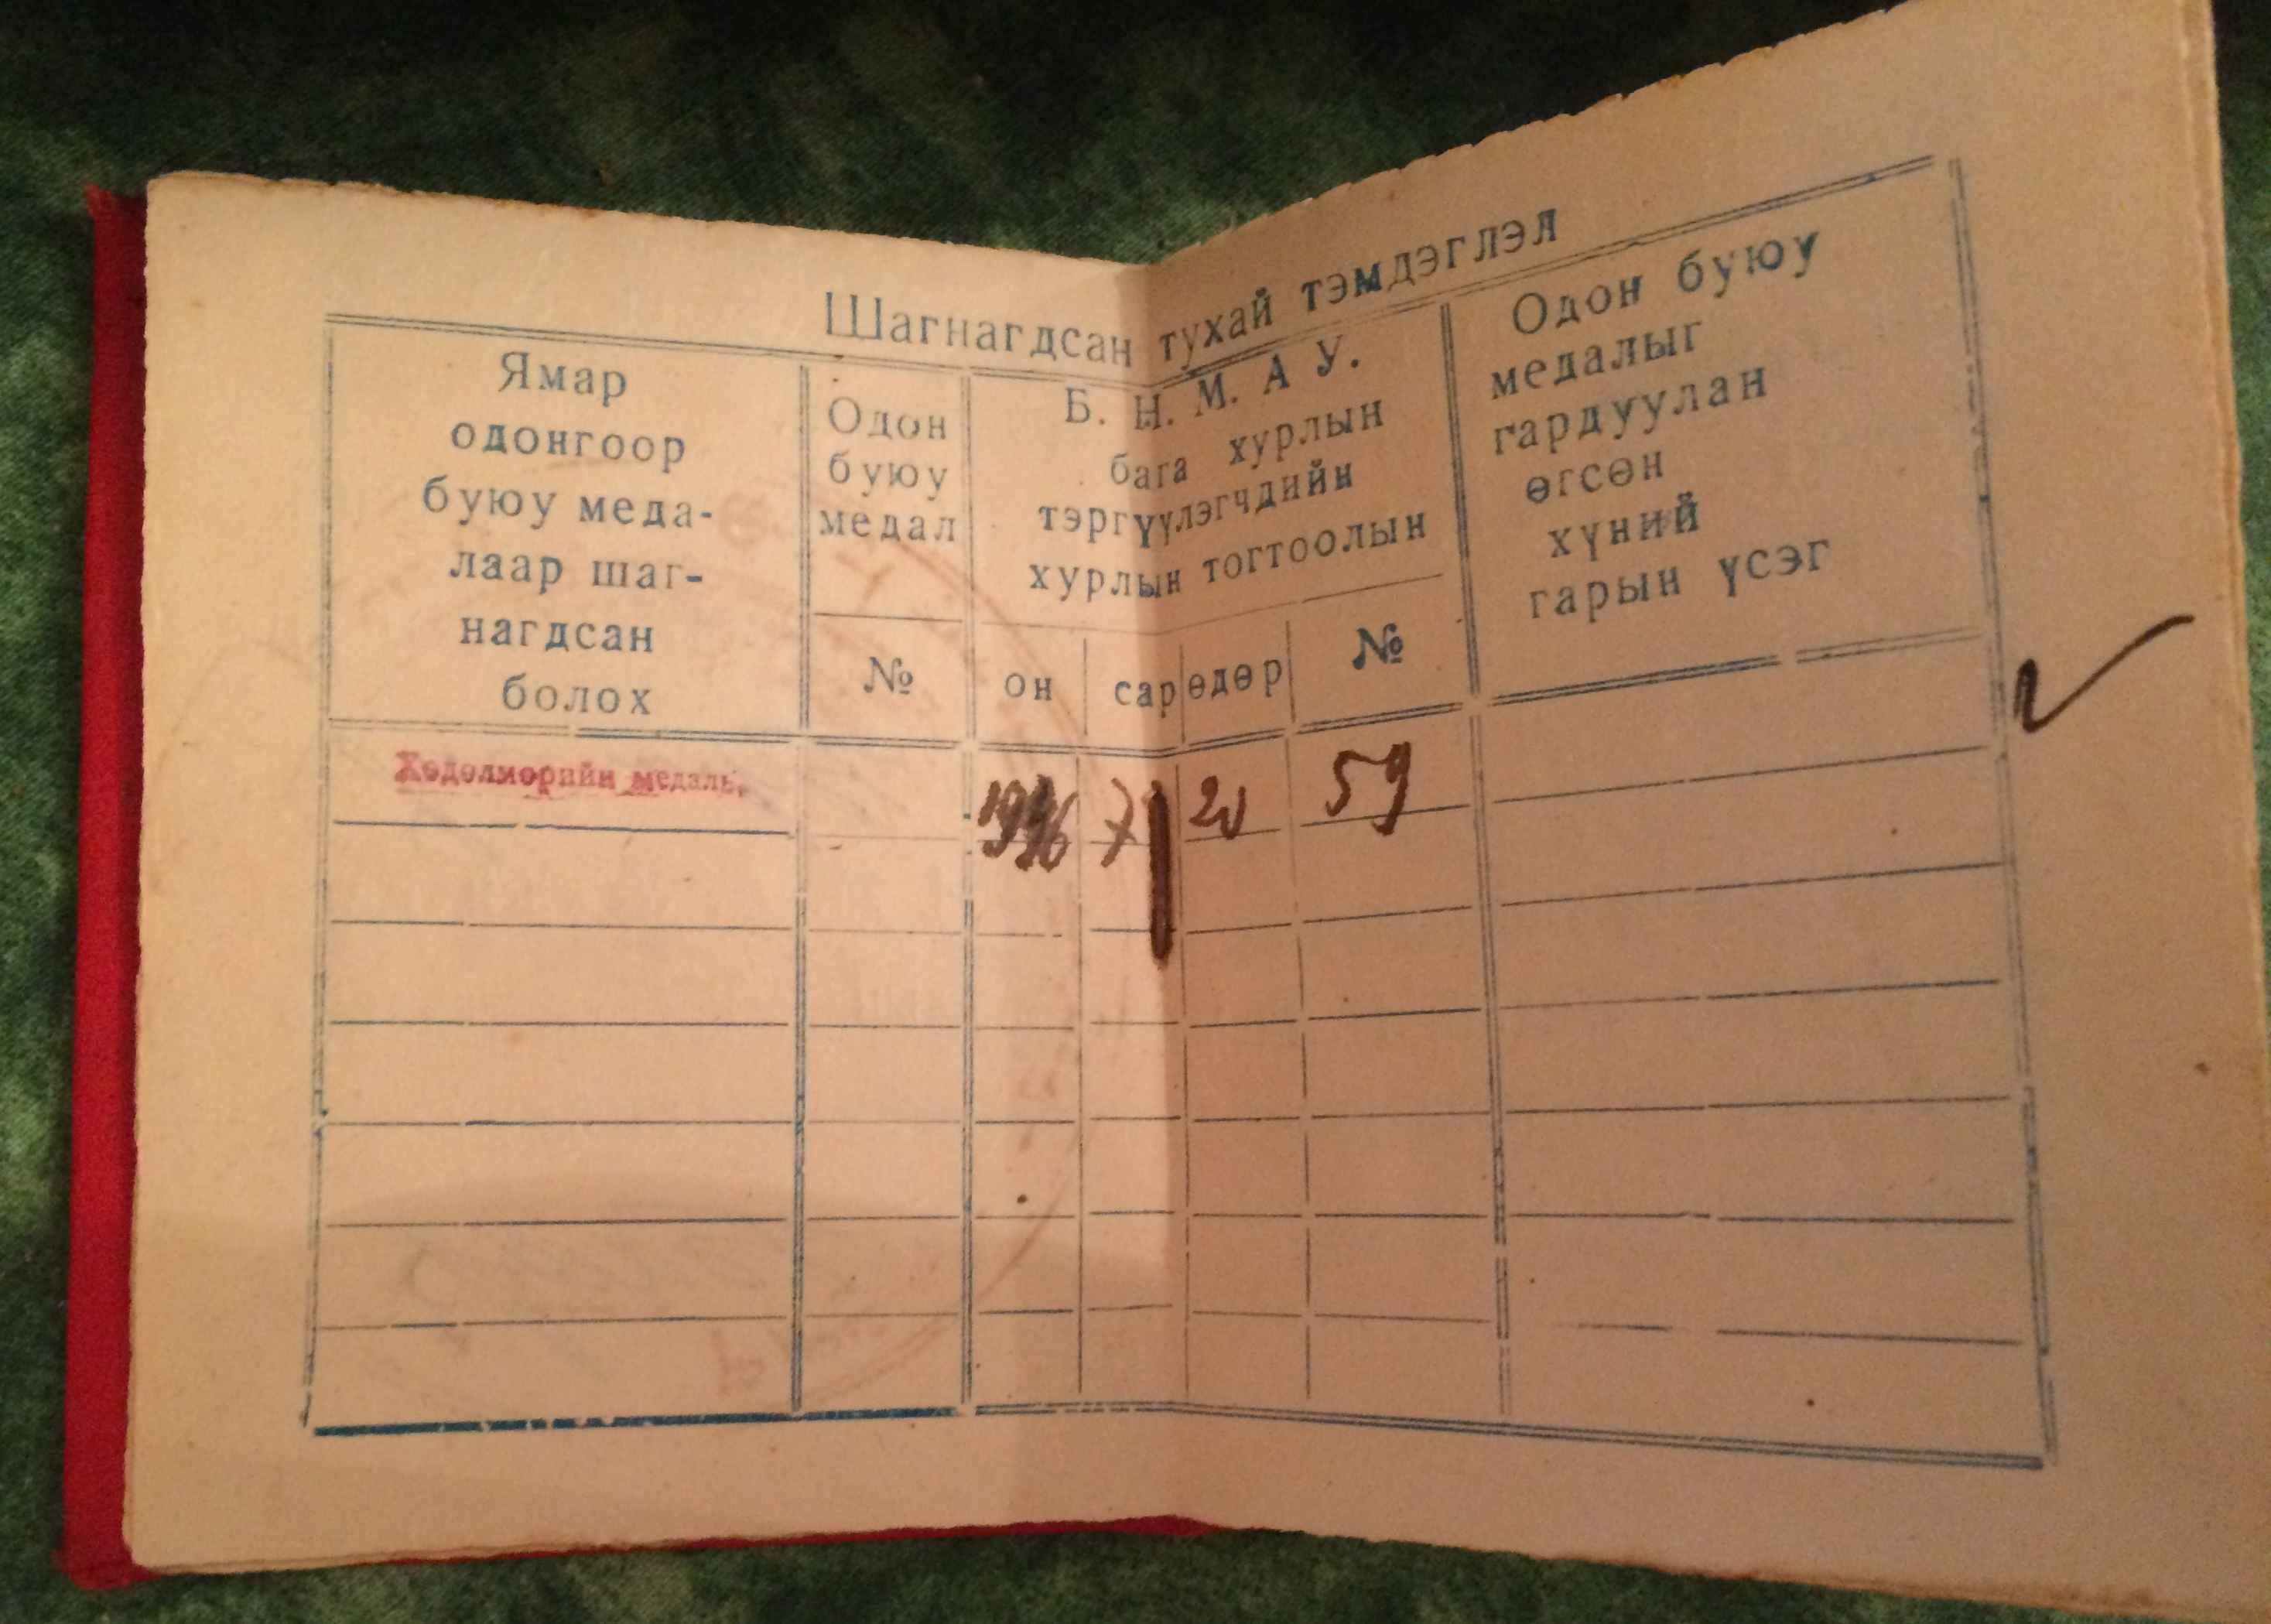 Шагнагдсан тухай тэмдэглэл
Ямар
одонгоор
буюу меда-
лаар шаг-
нагдсан
болох
Одон
буюу
медал
№
Б. Н. М. А У.
бага хурлын
тэргүүлэгчдийн
хурлын тогтоолын
он сар өдөр №
Одон буюу
медалыг
гардуулан
өгсөн
хүний
гарын үсэг
Хөдөлмөрийн медаль.
7 59